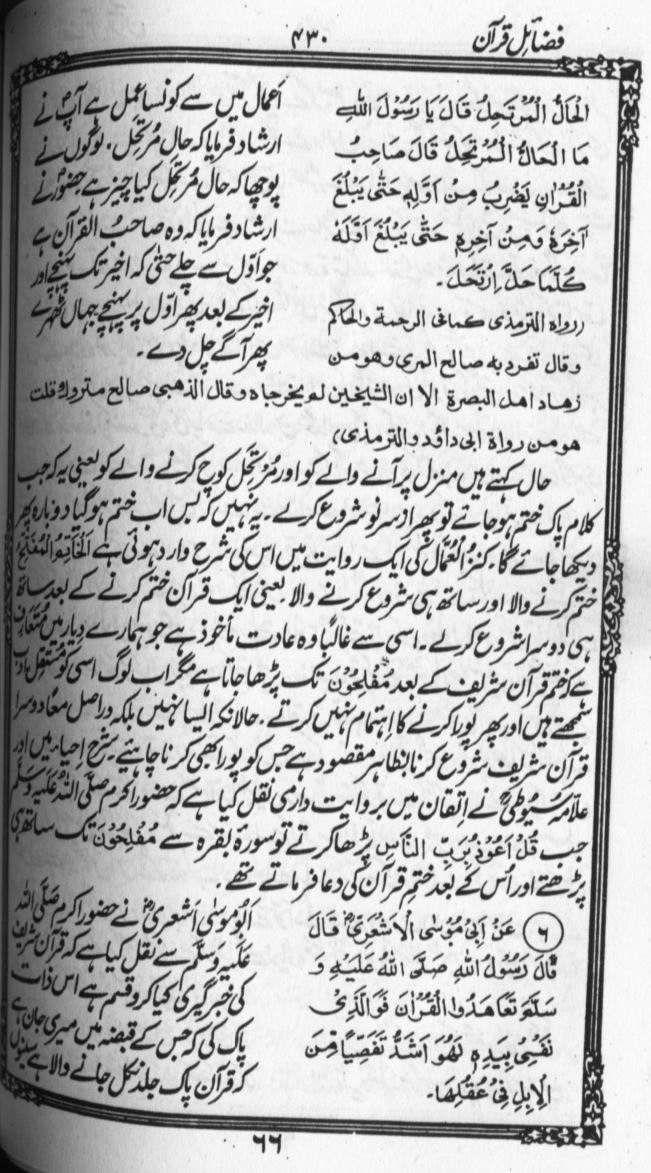 فضائل قرآن
۴۳۰
الْحَالُّ الْمُرْتَحِلُ قَالَ یَا رَسُوْلَ اللهِ
مَا الْحَالُّ الْمُرْتَحِلُ قَالَ صَاحِبُ
الْقُرْاٰنِ یَضْرِبُ مِنْ اَوَّلِهٖ حَتّٰی یَبْلُغَ
آخِرَهٗ وَمِنْ آخِرِهٖ حَتّٰی یَبْلُغَ اَوَّلَهٗ
كُلَّمَا حَلَّ اِرْتَحَلَ۔
(رواه الترمذی کمافی الرحمة والحاکم
وقال تفرد به صالح المری وهو من
زهاد اهل البصرة الا ان الشیخین لم یخرجاه وقال الذهبی صالح متروك قلت
هو من رواة ابی داؤد والترمذی)
اَعمال میں سے کونسا عمل ہے آپؐ نے
ارشاد فرمایا کہ حال مُرتَحِل۔ لوگوں نے
پوچھا کہ حال مُرتَحِل کیا چیز ہے حضورؐ نے
ارشاد فرمایا کہ وہ صاحبُ القرآن ہے
جو اَوّل سے چلے حتیٰ کہ اخیر تک پہنچے اور
اخیر کے بعد پھر اوّل پر پہنچے جہاں ٹھہرے
پھر آگے چل دے۔
حال کہتے ہیں منزل پر آنے والے کو اور مُرتَحِل کوچ کرنے والے کو یعنی یہ کہ جب
کلام پاک ختم ہو جائے تو پھر از سر نو شروع کر لے۔ یہ نہیں کہ بس اب ختم ہو گیا دوبارہ پھر
دیکھا جائے گا۔ کنزُ العُمّال کی ایک روایت میں اس کی شرح وارد ہوئی ہے اَلْخَاتِمُ الْمُفَتِّحُ
ختم کرنے والا اور ساتھ ہی شروع کرنے والا یعنی ایک قرآن ختم کرنے کے بعد ساتھ
ہی دوسرا شروع کر لے۔ اسی سے غالباً وہ عادت مأخوذ ہے جو ہمارے دیار میں مُتَعارِف
ہے کہ ختم قرآن شریف کے بعد مُفْلِحُوْنَ تک پڑھا جاتا ہے مگر اب لوگ اسی کو مُستقِل ادب
سمجھتے ہیں اور پھر پورا کرنے کا اِہتمام نہیں کرتے۔ حالانکہ ایسا نہیں بلکہ دراصل مَعاً دوسرا
قرآن شریف شروع کرنا بظاہر مقصود ہے جس کو پورا بھی کرنا چاہیئے۔ شرح احیاء میں اور
علّامہ سیوطیؒ نے اِتقان میں بروایت دارمی نقل کیا ہے کہ حضور اکرم صَلَّی اللهُ عَلَیْہِ وَسَلَّم
جب قُلْ اَعُوْذُ بِرَبِّ النَّاسِ پڑھا کرتے تو سورۂ بقرہ سے مُفْلِحُوْنَ تک ساتھ ہی
پڑھتے اور اُس کے بعد ختم قرآن کی دعا فرماتے تھے۔
۶ عَنْ اَبِیْ مُوْسَی الْاَشْعَرِیِّؓ قَالَ
قَالَ رَسُوْلُ اللهِ صَلَّی اللهُ عَلَیْهِ وَ
سَلَّمَ تَعَاهَدُوا الْقُرْاٰنَ فَوَالَّذِیْ
نَفْسِیْ بِیَدِهٖ لَهُوَ اَشَدُّ تَفَصِّیًا مِّنَ
الْاِبِلِ فِیْ عُقُلِهَا۔
اَبُو موسیٰ اَشعریؓ نے حضور اکرم صَلَّی اللهُ
عَلَیْہِ وَسَلَّم سے نقل کیا ہے کہ قرآن شریف
کی خبر گیری کیا کرو قسم ہے اس ذات
پاک کی کہ جس کے قبضہ میں میری جان ہے
کہ قرآن پاک جلد نکل جانے والا ہے سینوں
۶۶